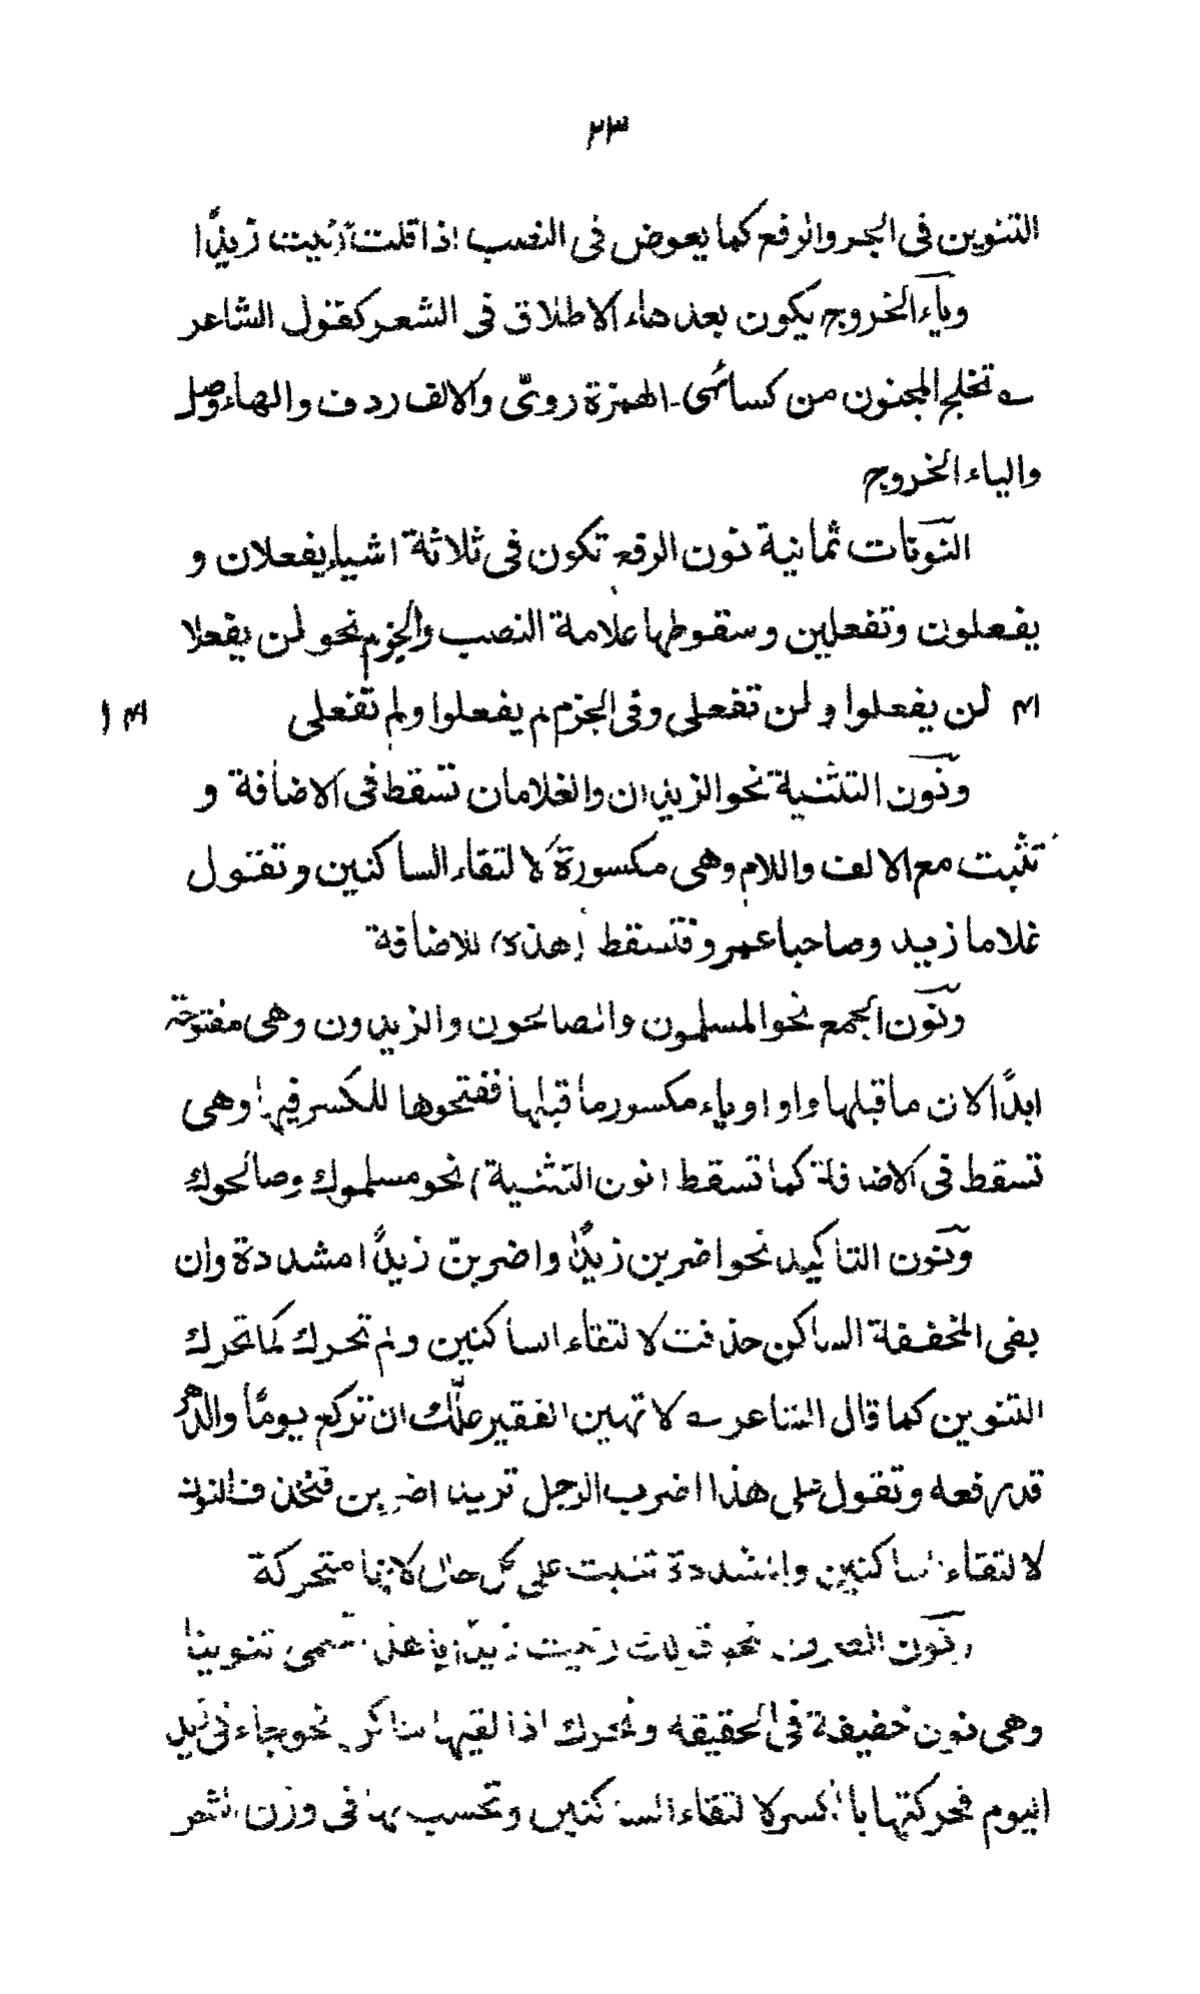 ٢٣
التنوين فى الجر والرفع كما يعوض فى النصب اذا قلت رأيت زيدًا
وياء الخروج يكون بعد هاء الاطلاق فى الشعر كقول الشاعر
ـه تخلج المجنون من كسائهى ـ الهمزة روىّ والالف ردف والهاء وصل
والياء الخروج
النونات ثمانية نون الرفع تكون فى ثلاثة اشياء يفعلان و
يفعلون وتفعلين وسقوطها علامة النصب والجزم نحو لن يفعلا
٣١ لن يفعلوا و لن تفعلى وفى الجزم لم يفعلوا ولم تفعلى ٣١ ا
ونون التثنية نحو الزيدان والغلامان تسقط فى الاضافة و
تثبت مع الالف واللام وهى مكسورة لالتقاء الساكنين وتقول
غلاما زيد وصاحبا عمرو فتسقط (هذه) للاضافة
ونون الجمع نحو المسلمون والصالحون والزيدون وهى مفتوحة
ابدًا لان ما قبلها واو او ياء مكسور ما قبلها ففتحوها للكسر فيها وهى
تسقط فى الاضافة كما تسقط (نون التثنية) نحو مسلموك وصالحوك
ونون التاكيد نحو اضربن زيدًا واضربنّ زيدًا مشددة وان
يفى المخففة الساكن حذفت لالتقاء الساكنين ولم تحرك كما تحرك
التنوين كما قال الشاعر ـه لا تهين الفقير علّك ان تركع يومًا والدهر
قد رفعه وتقول على هذا اضرب الرجل تريد اضربن فتحذف النون
لالتقاء الساكنين والمشددة تثبت على كل حال لانها متحركة
ونون الصرف نحو قولك رأيت زيدًا يا هذا تسمى تنوينا
وهى نون خفيفة فى الحقيقه وتحرك اذا لقيها ساكن نحو جاءنى زيد
اليوم فحركتها بالكسر لالتقاء الساكنين وتحسب بها فى وزن الشعر